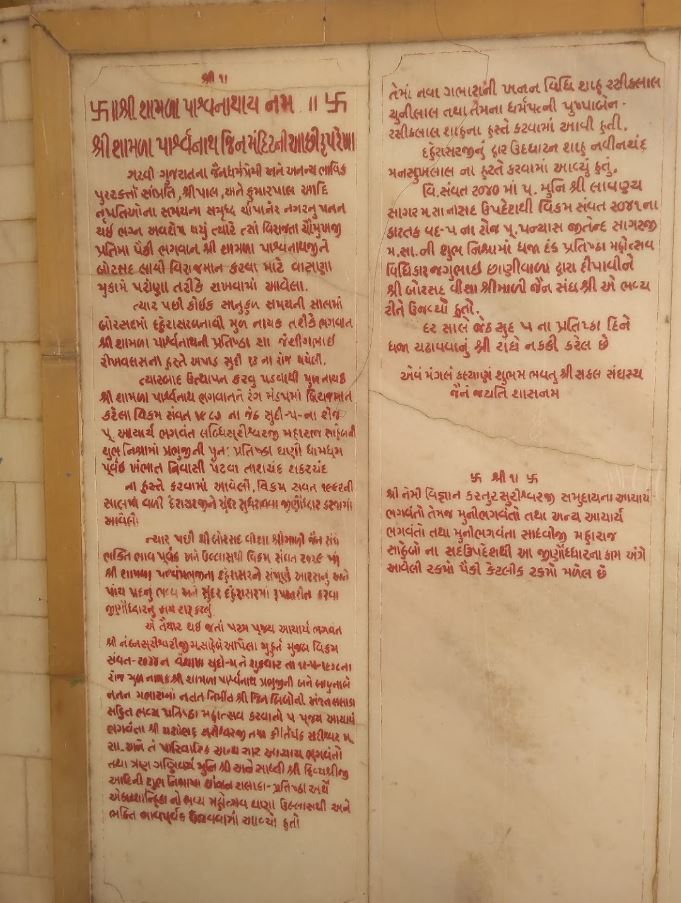 શ્રી ૧।
卐॥શ્રી શામળા પાર્શ્વનાથાય નમઃ ॥ 卐
શ્રી શામળા પાર્શ્વનાથ જિન મંદિરની આછી રૂપરેખા
ગરવી ગુજરાતના જૈનધર્મપ્રેમી અને અનન્ય ભાવિક
પુરસ્કર્તા સંપ્રતિ, શ્રીપાલ, અને કુમારપાલ આદિ
નૃપતિઓના સમયના સમૃધ્ધ ચાંપાનેર નગરનુ પતન
થઈ ભગ્ન અવશેષ થયું ત્યારે ત્યાં વિરાજતા ચૌમુખજી
પ્રતિમા પૈકી ભગવાન શ્રી શામળા પાશ્વનાથજીને
બોરસદ લાવી વિરાજમાન કરવા માટે વાસણા
મુકામે પરોણા તરીકે રાખવામાં આવેલા.
ત્યાર પછી કોઈક સાનુકુળ સમયની સાલમાં
બોરસદમાં દહેરાસરબનાવી મુળ નાયક તરીકે ભગવાન
શ્રી શામળા પાર્શ્વનાથની પ્રતિષ્ઠા શા જેશીંગભાઈ
રીખવદાસના હસ્તે અષાડ સુદી ૧૩ ના રોજ થયેલી.
ત્યારબાદ ઉત્થાપન કરવુ પડવાથી મુળ નાયક
શ્રી શામળા પાર્શ્વનાથ ભગવાનને રંગ મંડપમાં બિરાજમાન
કરેલા વિક્રમ સંવત ૧૯૮૭ ના જેઠ સુદી-૫-ના રોજ
પૂ. આચાર્ય ભગવંત લબ્ધિસુરીશ્વરજી મહારાજ સાહેબની
શુભ નિશ્રામાં પ્રભુજીની પુનઃ પ્રતિષ્ઠા ઘણી ધામધુમ
પૂર્વક ખંભાત નિવાસી પટવા તારાચંદ ઠાકરચંદ
ના હસ્તે કરવામાં આવેલી. વિક્રમ સવત ૧૯૯૨ની
સાલમાં વળી દેરાસરજીને સુંદર સુધરાવવા જીર્ણોધ્ધાર કરવામાં
આવેલો
ત્યાર પછી શ્રી બોરસદ વીશા શ્રીમાળી જૈન સંઘે
ભક્તિ ભાવ પૂર્વક અને ઉલ્લાસથી વિક્રમ સંવત ૨૦૨૯ માં
શ્રી શામળા પાર્શ્વપ્રભુજીના દહેરાસરને સંપૂર્ણ આરસનુ અને
પાંચ ગજનુ ભવ્ય અને સુંદર દહેરાસરમાં રૂપાંતરીત કરવા
જીર્ણોધ્ધારનુ કાર્ય શરૂ કર્યુ
એ તૈયાર થઈ જતાં પરમ પૂજ્ય આચાર્ય ભગવંત
શ્રી નંદનસુરીશ્વરીજી મ.સાહેબે આપેલા મુહુર્ત મુજબ વિક્રમ
સંવત-૨૦૩૪ના વૈશાખ સુદી-૫ ને શુક્રવાર તા ૧૨-૫-૧૯૭૮ના
રોજ મુળ નાયક શ્રી શામળા પાર્શ્વનાથ પ્રભુજીની બંને બાજુનાબે
નુતન ગભારામાં નુતન નિર્મીત શ્રી જિન બિંબોની અંજન સલાકા
સહિત ભવ્ય પ્રતિષ્ઠા મહોત્સવ કરવાનો પ પૂજ્ય આચાર્ય
ભગવંતો શ્રી યશોભદ્ર સુરીશ્વરજી તથા કીર્તિચંદ્ર સુરીશ્વર મ.
સા. અને તે પરિવારિક અન્ય ચાર આચાર્ય ભગવંતો
તથા ત્રણ ગણિવર્ય મુનિ શ્રી અને સાધ્વી શ્રી દિવ્યશ્રીજી
આદિની શુભ નિશ્રામાં અંજન શલાકા-પ્રતિષ્ઠા અર્થે
નો ભવ્ય મહોત્સવ ઘણા ઉલ્લાસથી અને
ભક્તિ ભાવપૂર્વક ઉજવવામાં આવ્યો હતો
તેમાં નવા ગભારાની ખનન વિધિ શાહ રસીકલાલ
ચુનીલાલ તથા તેમના ધર્મપત્ની પુષ્પાબેન-
રસીકલાલ શાહના હસ્તે કરવામાં આવી હતી.
દહેરાસરજીનું દ્વાર ઉદઘાટન શાહ નવીનચંદ્ર
મનસુખલાલ ના હસ્તે કરવામાં આવ્યું હતું.
વિ.સંવત ૨૦૪૦ માં પૂ. મુનિ શ્રી લાવણ્ય
સાગર મ.સાનોસદ ઉપદેશથી વિક્રમ સંવત ૨૦૪૧ના
કારતક વદ-૫ ના રોજ પૂ.પન્યાસ જીતેન્દ્ર સાગરજી
મ.સા.ની શુભ નિશ્રામાં ધજા દંડ પ્રતિષ્ઠા મહોત્સવ
વિધિકાર જગુભાઈ છાણીવાળા દ્વારા દીપાવીને
શ્રી બોરસદ વીશા શ્રીમાળી જૈન સંઘ શ્રી એ ભવ્ય
રીતે ઉજવ્યો હતો.
દર સાલે જેઠ સુદ ૫ ના પ્રતિષ્ઠા દિને
ધજા ચઢાવવાનું શ્રી સંઘે નકકી કરેલ છે
એવં મંગલં કલ્યાણં શુભમ ભવતુ શ્રી સકલ સંઘસ્ય
જૈનં જયતિ શાસનમ
卐 શ્રી ૧। 卐
શ્રી નેમી વિજ્ઞાન કસ્તુર સુરીશ્વરજી સમુદાયના આચાર્ય
ભગવંતો તેમજ મુનીભગવંતો તથા અન્ય આચાર્ય
ભગવંતો તથા મુનીભગવંતો સાધ્વીજી મહારાજ
સાહેબો ના સદઉપદેશથી આ જીણોધ્ધારના કામ અંગે
આવેલી રકમો પૈકી કેટલીક રકમો મળેલ છે